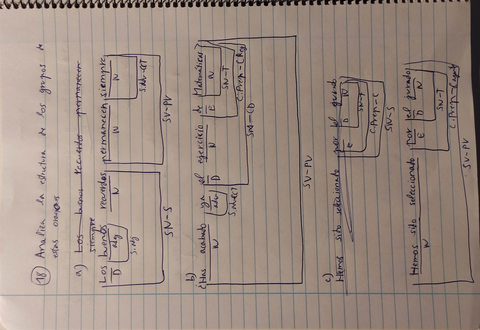 18 Analiza la estructura de los grupos de
estas oraciones
a) Los buenos recuerdos permanecen
siempre
Los buenos recuerdos permanecen siempre
D Adj N N N
S.Adj S.Adv-CCT
SN-S SV-PV
b)
¿Has acabado ya el ejercicio de Matemáticas?
N Adv D N E N
SN-T
C.Prep-CReg
SN-CD
SV-PV
c)
Hemos sido seleccionado por el jurado
E D N
SN-T
C.Prep-C
SN-S
Hemos sido seleccionado por el jurado
N E D N
SN-T
C.Prep-Cagte
SV-PV